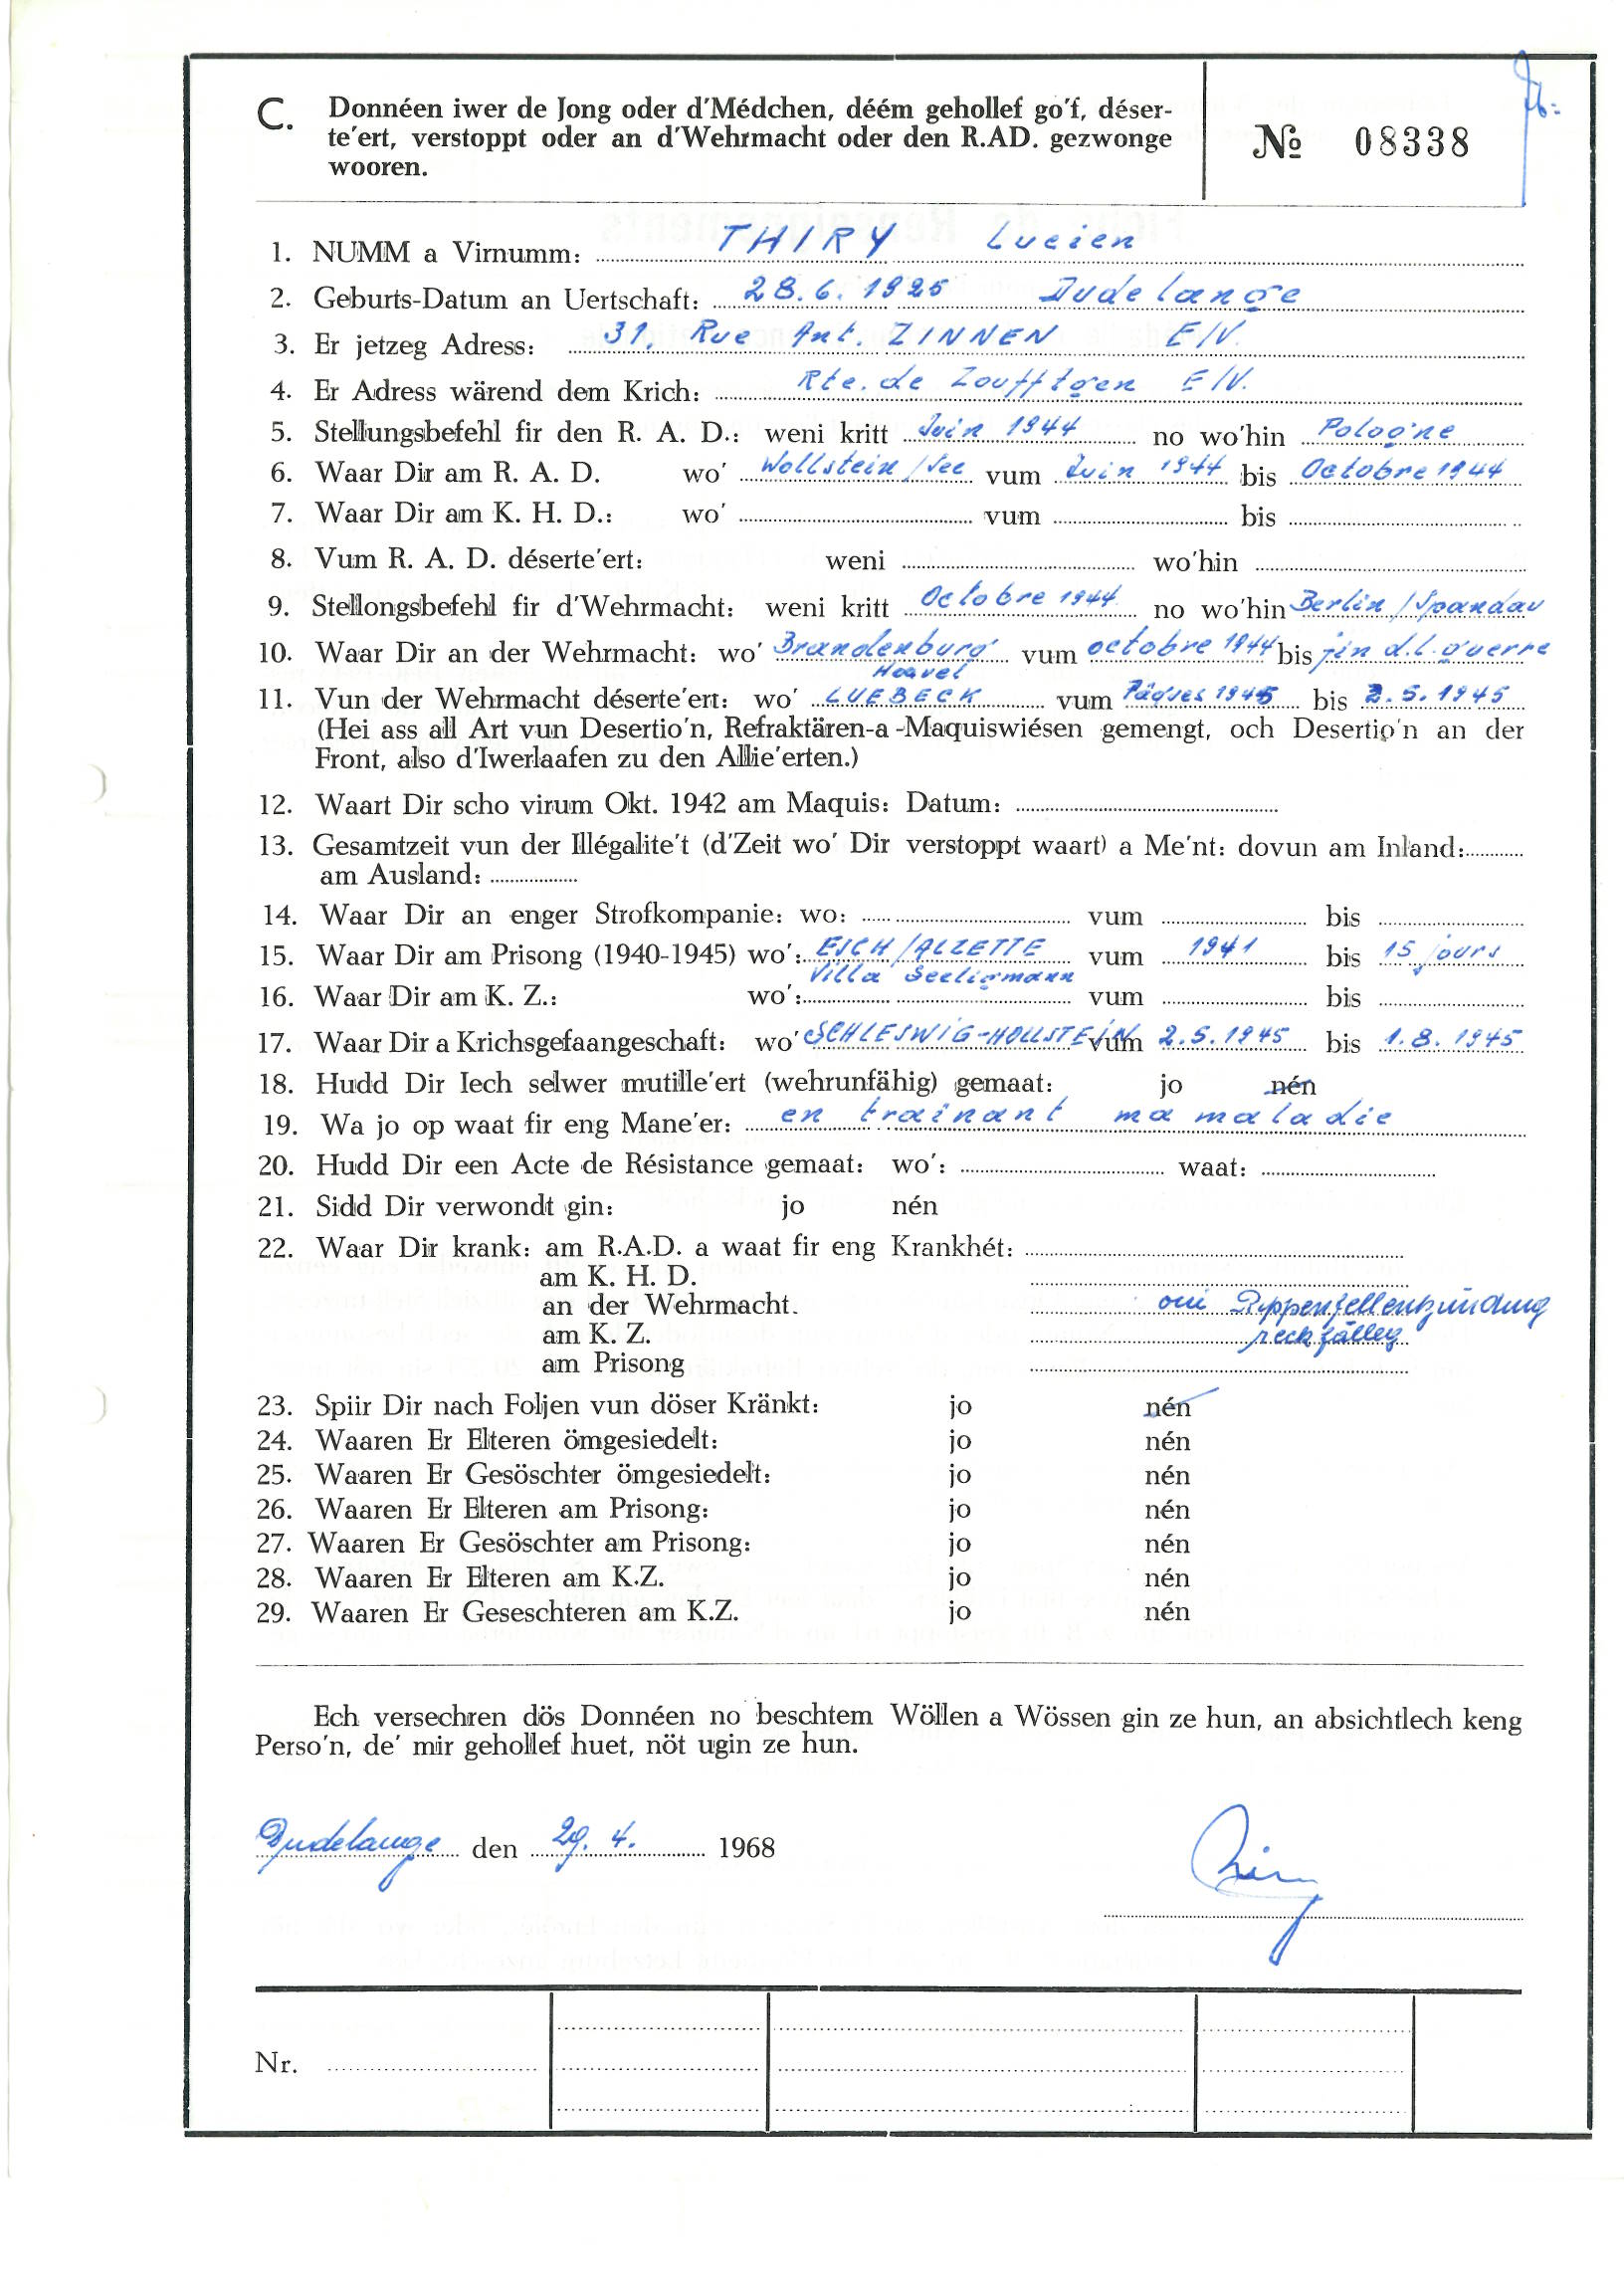 C. Donnéen iwer de Jong oder d'Médchen, déém gehollef go'f, déser-
te'ert, verstoppt oder an d'Wehrmacht oder den R.AD. gezwonge
wooren.
№ 08338
1. NUMM a Virnumm: THIRY Lucien
2. Geburts-Datum an Uertschaft: 28.6.1925 Dudelange
3. Er jetzeg Adress: 31, Rue Ant. ZINNEN E/V.
4. Er Adress wärend dem Krich: Rte. de Zoufftgen E/V.
5. Stellungsbefehl fir den R. A. D.: weni kritt Juin 1944 no wo'hin Pologne
6. Waar Dir am R. A. D. wo' Wollstein/See vum Juin 1944 bis Octobre 1944
7. Waar Dir am K. H. D.: wo' vum bis
8. Vum R. A. D. déserte'ert: weni wo'hin
9. Stellongsbefehl fir d'Wehrmacht: weni kritt Octobre 1944 no wo'hin Berlin/Spandau
10. Waar Dir an der Wehrmacht: wo' Brandenburg vum octobre 1944 bis fin d.l. guerre
Havel
11. Vun der Wehrmacht déserte'ert: wo' LUEBECK vum Pâques 1945 bis 2.5.1945
(Hei ass all Art vun Desertio'n, Refraktären-a-Maquiswiésen gemengt, och Desertio'n an der
Front, also d'Iwerlaafen zu den Allie'erten.)
12. Waart Dir scho virum Okt. 1942 am Maquis: Datum:
13. Gesamtzeit vun der Illégalite't (d'Zeit wo' Dir verstoppt waart) a Me'nt: dovun am Inland:
am Ausland:
14. Waar Dir an enger Strofkompanie: wo: vum bis
15. Waar Dir am Prisong (1940-1945) wo': ESCH/ALZETTE vum 1941 bis 15 jours
Villa Seeligmann
16. Waar Dir am K. Z.: wo': vum bis
17. Waar Dir a Krichsgefaangeschaft: wo' SCHLESWIG-HOLLSTEIN vum 2.5.1945 bis 1.8.1945
18. Hudd Dir Iech selwer mutille'ert (wehrunfähig) gemaat: jo nén
19. Wa jo op waat fir eng Mane'er: en trainant ma maladie
20. Hudd Dir een Acte de Résistance gemaat: wo': waat:
21. Sidd Dir verwondt gin: jo nén
22. Waar Dir krank: am R.A.D. a waat fir eng Krankhét:
am K. H. D.
an der Wehrmacht. oui Rippenfellentzündung
am K. Z.
am Prisong
23. Spiir Dir nach Foljen vun döser Kränkt: jo nén
24. Waaren Er Elteren ömgesiedelt: jo nén
25. Waaren Er Gesöschter ömgesiedelt: jo nén
26. Waaren Er Elteren am Prisong: jo nén
27. Waaren Er Gesöschter am Prisong: jo nén
28. Waaren Er Elteren am K.Z. jo nén
29. Waaren Er Geseschteren am K.Z. jo nén
Ech versechren dös Donnéen no beschtem Wöllen a Wössen gin ze hun, an absichtlech keng
Perso'n, de' mir gehollef huet, nöt ugin ze hun.
Dudelange den 29. 4. 1968
Nr.